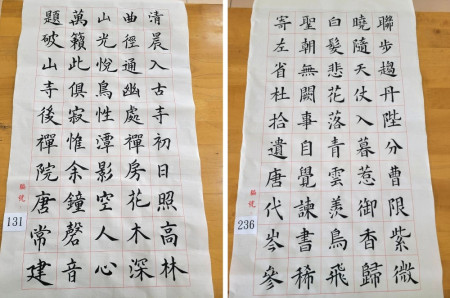 清晨入古寺初日照高林
曲徑通幽處禪房花木深
山光悅鳥性潭影空人心
萬籟此俱寂惟余鐘磬音
題破山寺後禪院唐常建
131
聯步趨丹陛分曹限紫微
曉隨天仗入暮惹御香歸
白髮悲花落青雲羨鳥飛
聖朝無闕事自覺諫書稀
寄左省杜拾遺唐代岑參
236